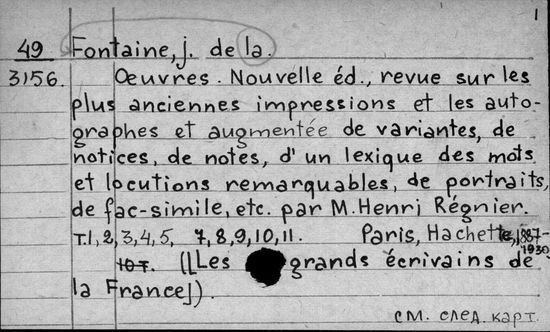 1
49 Fontaine, j. de la.
3156. Œuvres. Nouvelle éd., revue sur les
plus anciennes impressions et les auto-
graphes et augmentée de variantes, de
notices, de notes, d'un lexique des mots
et locutions remarquables, de portraits,
de fac-simile, etc. par M. Henri Régnier.
T.1,2,3,4,5, 7,8,9,10,11. Paris, Hachette, 1887-
1930
10 т. ([Les grands écrivains de
la France]).
см. след. карт.